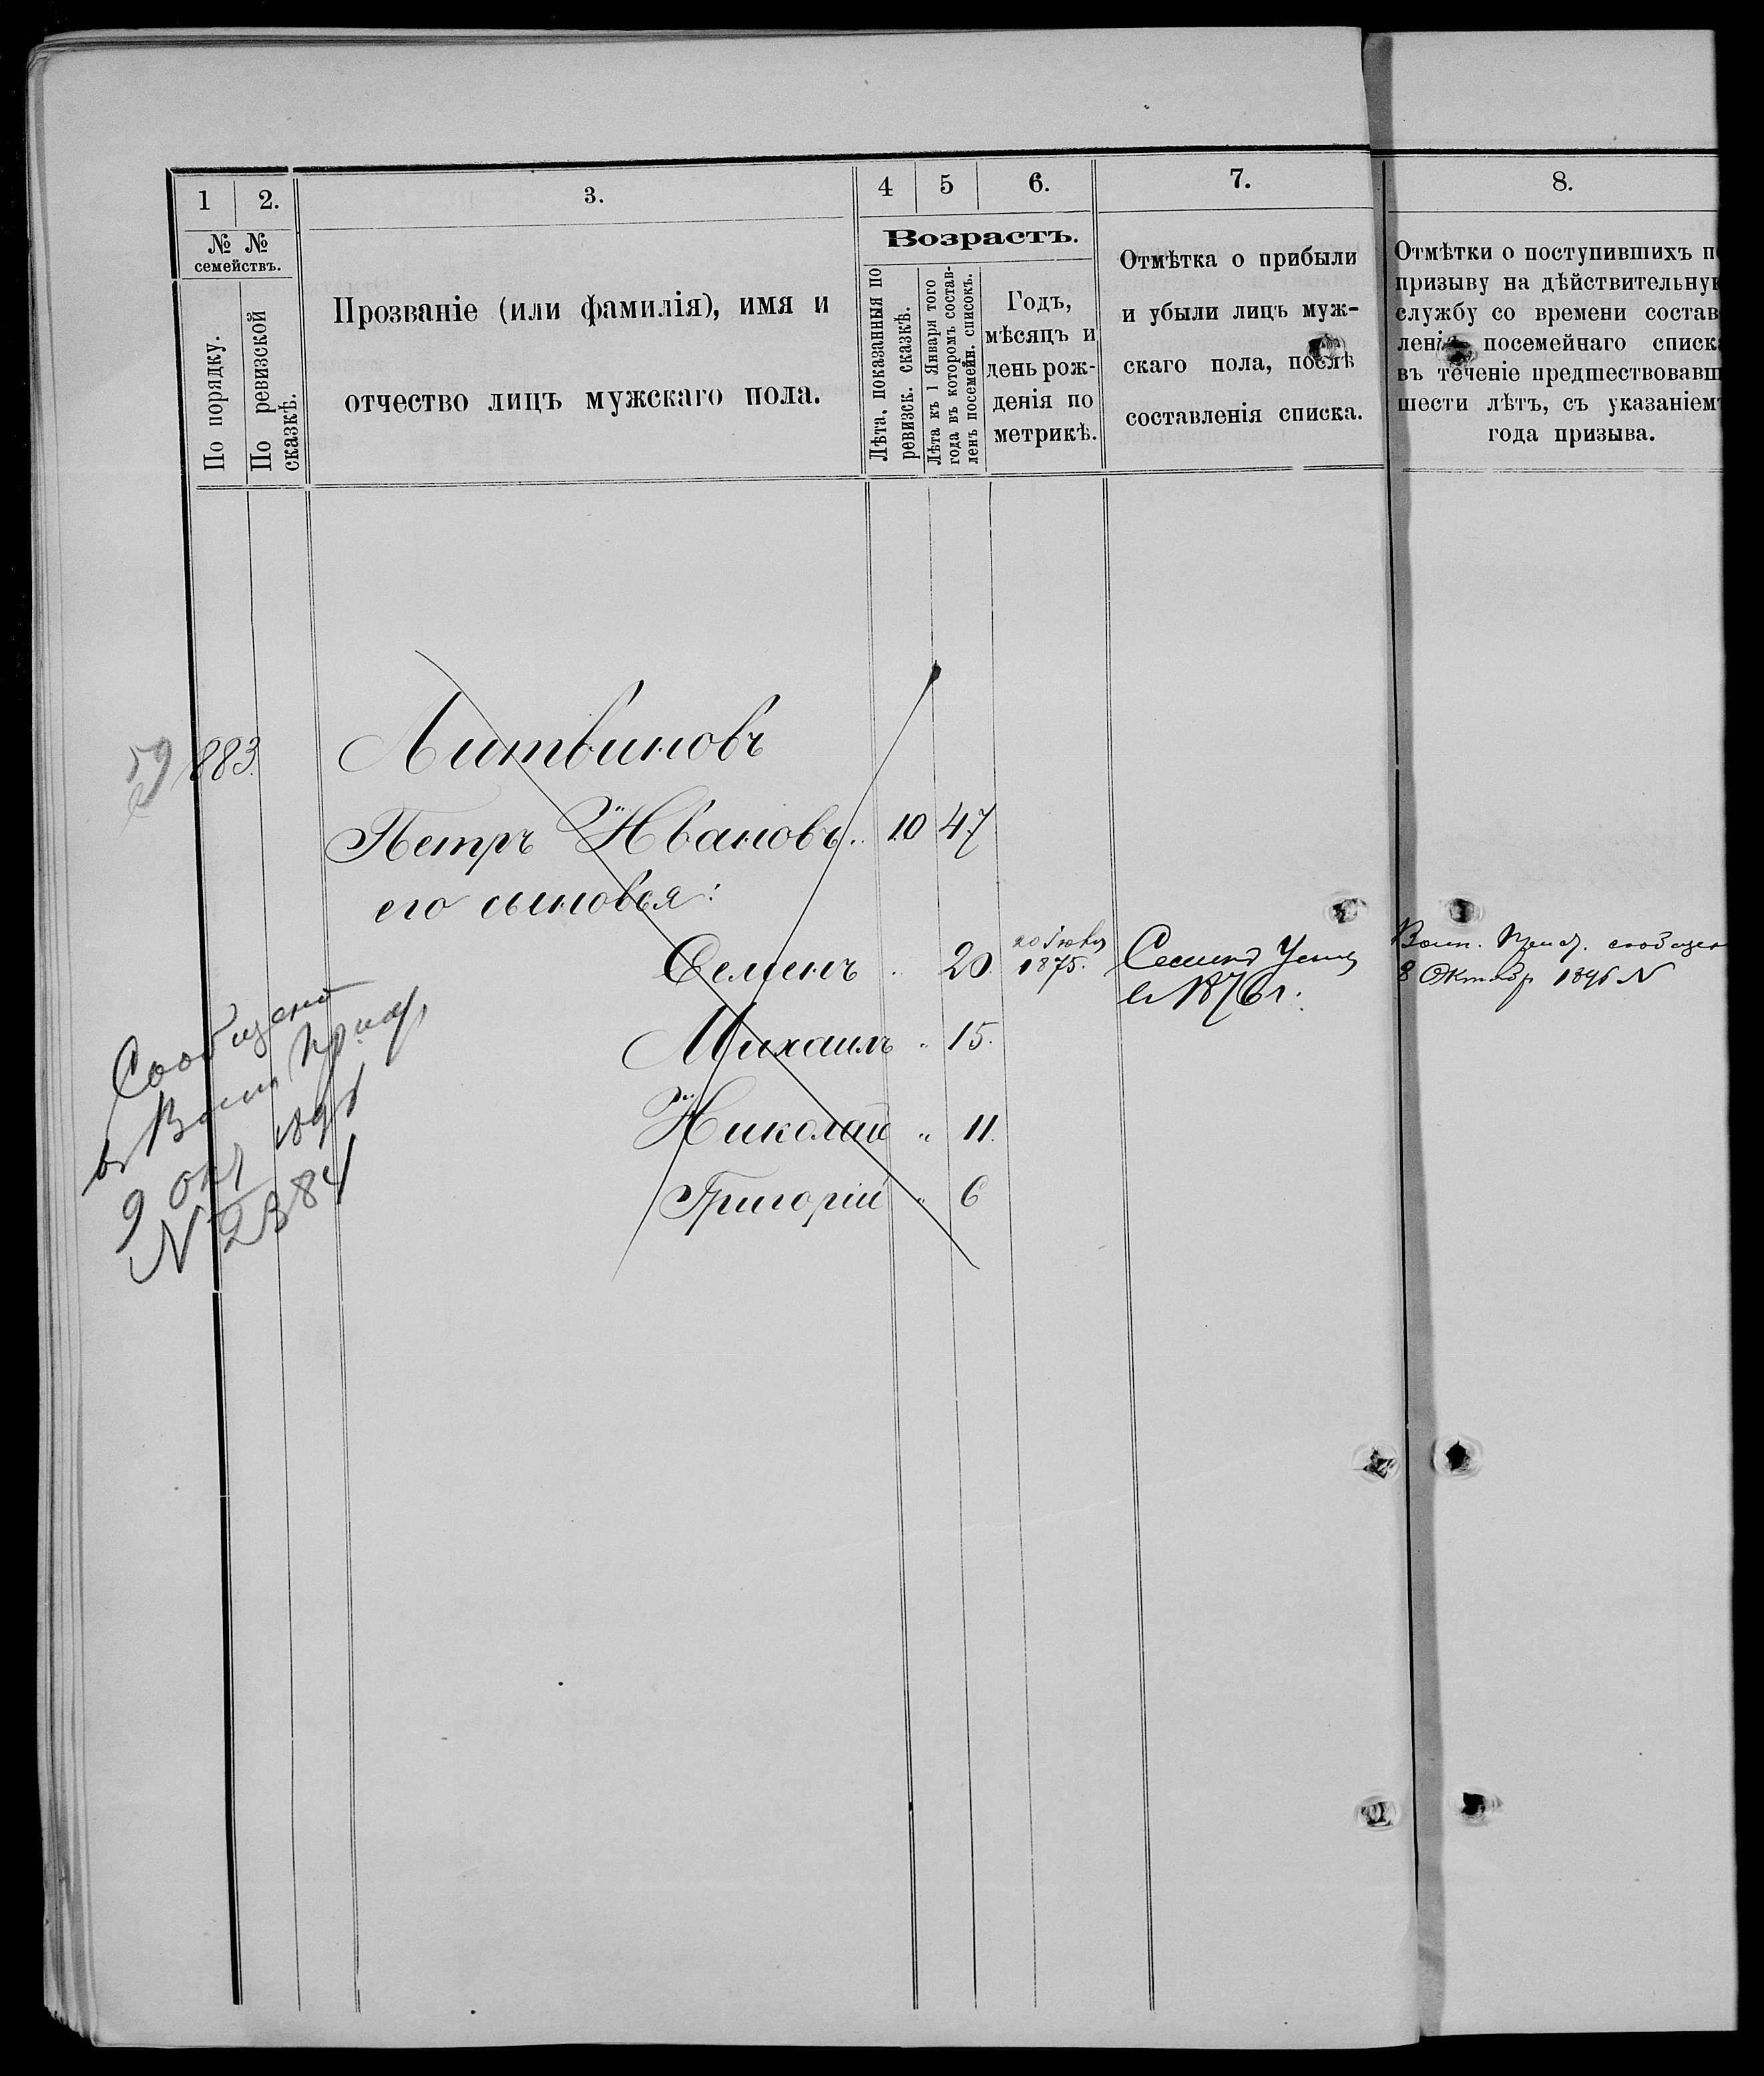 1 2. 3. 4 5 6. 7. 8.
№ № семействъ.
По порядку.
По ревизской сказкѣ.
Прозваніе (или фамилія), имя и
отчество лицъ мужскаго пола.
Возрастъ.
Лѣта, показанныя по
ревизск. сказкѣ.
Лѣта къ 1 Января того
года въ которомъ состав-
ленъ посемейн. списокъ.
Годъ,
мѣсяцъ и
день рож-
денія по
метрикѣ.
Отмѣтка о прибыли
и убыли лицъ муж-
скаго пола, послѣ
составленія списка.
Отмѣтки о поступившихъ п
призыву на дѣйствительну
службу со времени состав
леніе посемейнаго списк
въ теченіе предшествовавш
шести лѣтъ, съ указаніем
года призыва.
59
883. Литвиновъ
Петръ Ивановъ 10 47
его сыновья:
Семенъ 20 1875. Семенъ
в 1876 г. 8 Октябр 1896 N
Михаилъ 15.
Николай 11.
Григорій 6
Сообщено
в Воин Прис
9 Окт 1896
N 2384